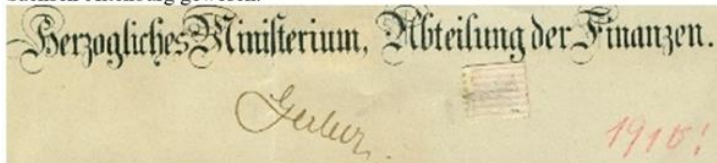 Herzogliches Ministerium, Abteilung der Finanzen.
1910!